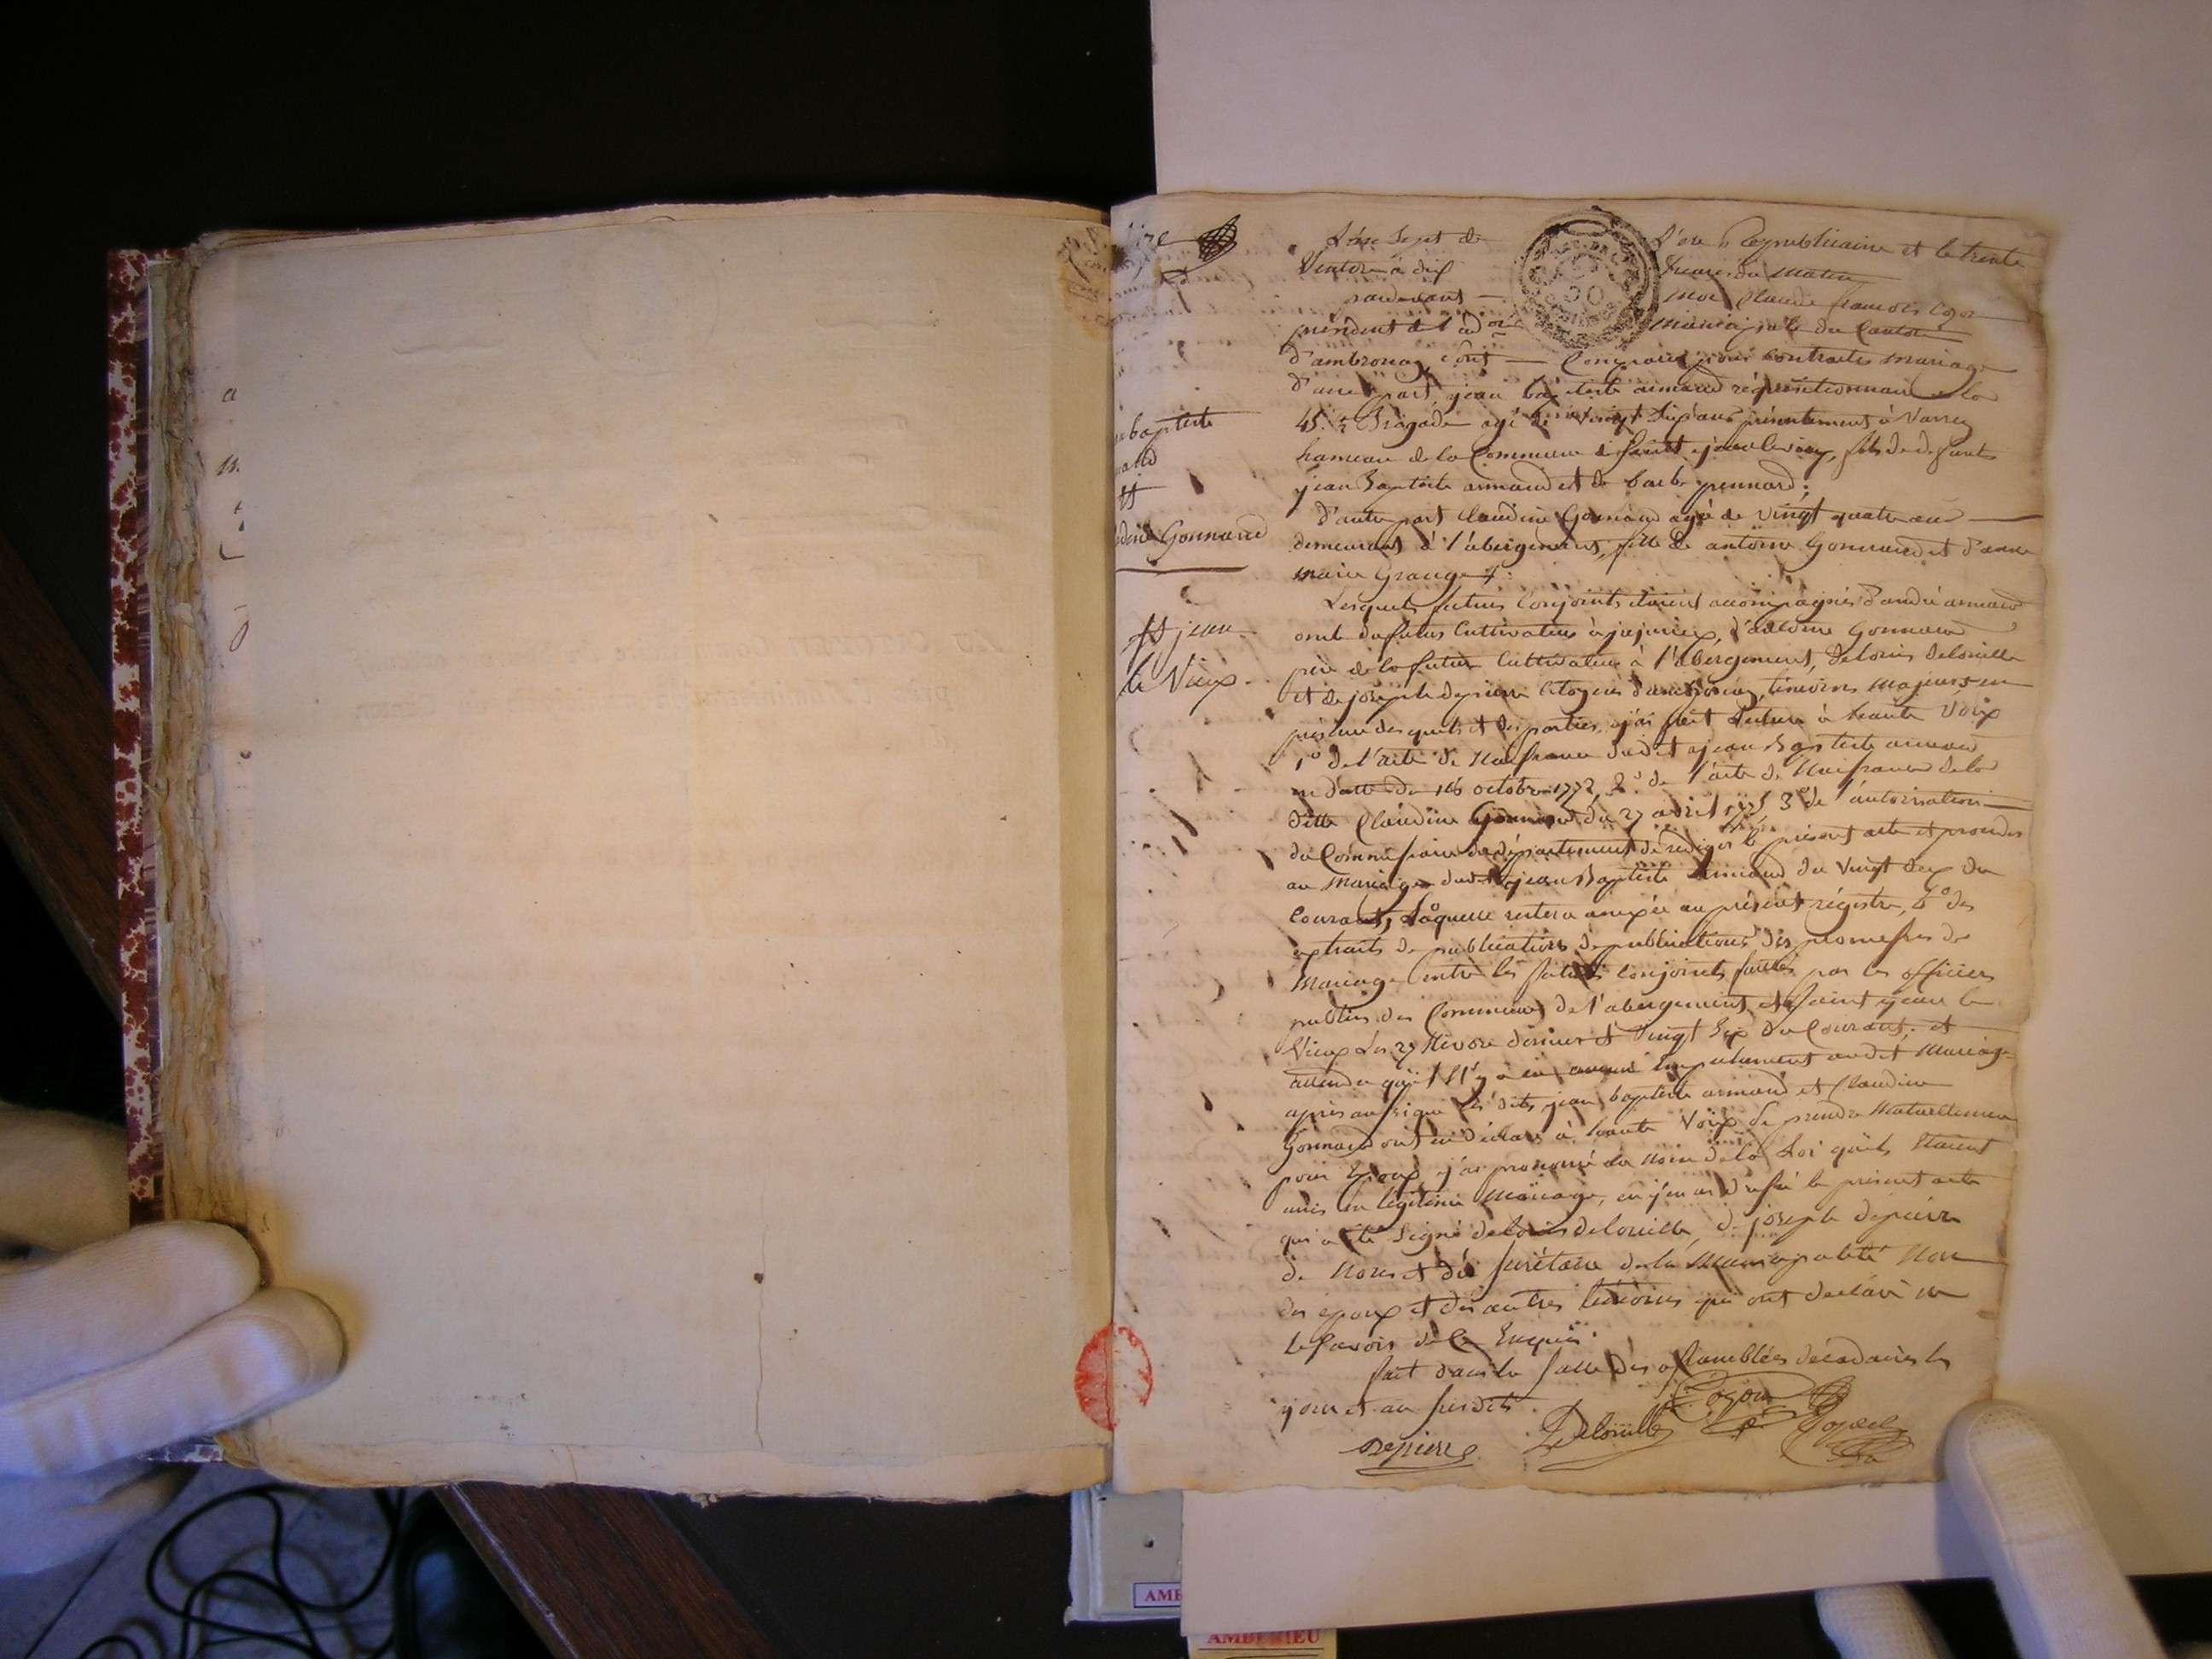 L'an Sept de L'ere Republicaine et le trente
Ventose à dix heures du matin
pardevant moi Claude françois Cozon
président de l'ad.on municipale du Canton
d'ambronay, sont Comparus pour Contracter mariage
d'une part jean baptiste armand réquisitionnaire de la
45.e Brigade agé de vingt six ans présentement à Varrey
hameau de la Commune de saint jean le vieux, fils de defunts
jean Baptiste armand et de barbe
d'autre part Claudine Gonnand agée de vingt quatre ans
demeurant à l'abergement, fille de antoine Gonnand et d'anne
marie Grange
Lesquels futurs Conjoints étaient accompagnés d'andré armand
oncle du futur Cultivateur à jujurieux, d'antoine Gonnand
père de la future Cultivateur à l'abergement, de Louis Delouille
et de joseph depierre Citoyens d'ambronay, témoins majeurs en
présence desquels et des parties, j'ai fait lecture à haute voix
1.° de l'acte de Naissance dudit jean Baptiste armand
en datte du 16 octobre 1772, 2.° de l'acte de Naissance de la
ditte Claudine Gonnand du 27 avril 3.° de l'autorisation
du Commissaire du département de rediger le présent acte et proceder
au mariage dudit jean Baptiste armand du vingt deux du
Courant, laquelle restera anexée au présent régistre, 4.° des
extraits de publications de publications des promesses de
Mariage entre les futurs Conjoints faittes par les officiers
publics des Communes de l'abergement et saint jean le
Vieux les 27 Nivose dernier et Vingt six du Courant; et
attendu qu'il n'y a eu aucun empechement audit Mariage
après aussi que les dits jean baptiste armand et Claudine
Gonnand ont eu déclaré à haute Voix se prendre Mutuellement
pour Epoux, j'ai prononcé au Nom de la Loi qu'ils étaient
unis en légitime Mariage, et j'en ai dressé le présent acte
qui a été signé de Louis delouille, de joseph depierre
de Nous et du secrétaire de la Municipalité Non
des époux et des autres témoins qui ont déclaré ne
le savoir de ce Enquis.
fait dans la salle des assemblées décadaires les
jour et an susdits.
Depierre Delouille Cozon
baptiste
Gonnand
St jean
le Vieux
AMBERIEU